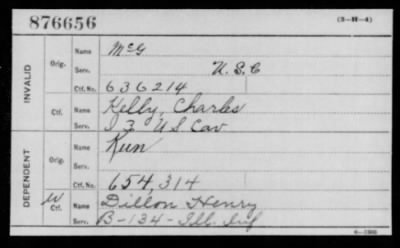 876656
(3-H-4)
INVALID
Orig.
Name McG
Serv. U.S.C
Ctf. No. 636214
Ctf.
Name Kelly, Charles
Serv. I 3 US Cav
DEPENDENT
Orig.
Name
Serv.
Ctf. No. 654,314
W Ctf.
Name Dillon Henry
Serv. B-134-Ill. Inf